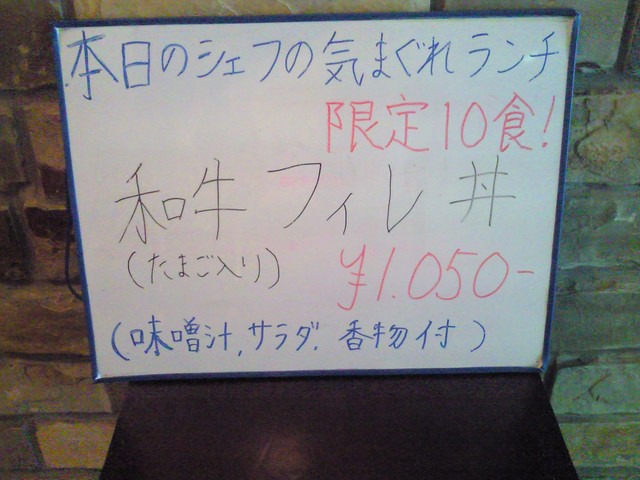 本日のシェフの気まぐれランチ
限定10食!
和牛フィレ丼
(たまご入り)
¥1.050-
(味噌汁,サラダ.香物付)